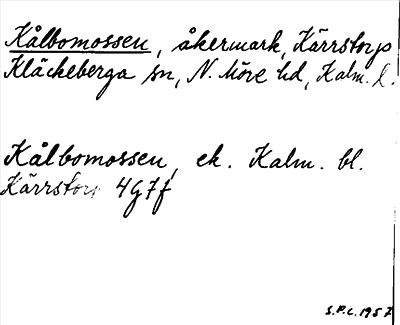 Kålbomossen, åkermark, Kärrstorp
Kläckeberga sn, N. Möre hd, Kalm. l.
Kålbomossen, ek. Kalm. bl.
Kärrstorp 4G7f
S.P.C. 1957